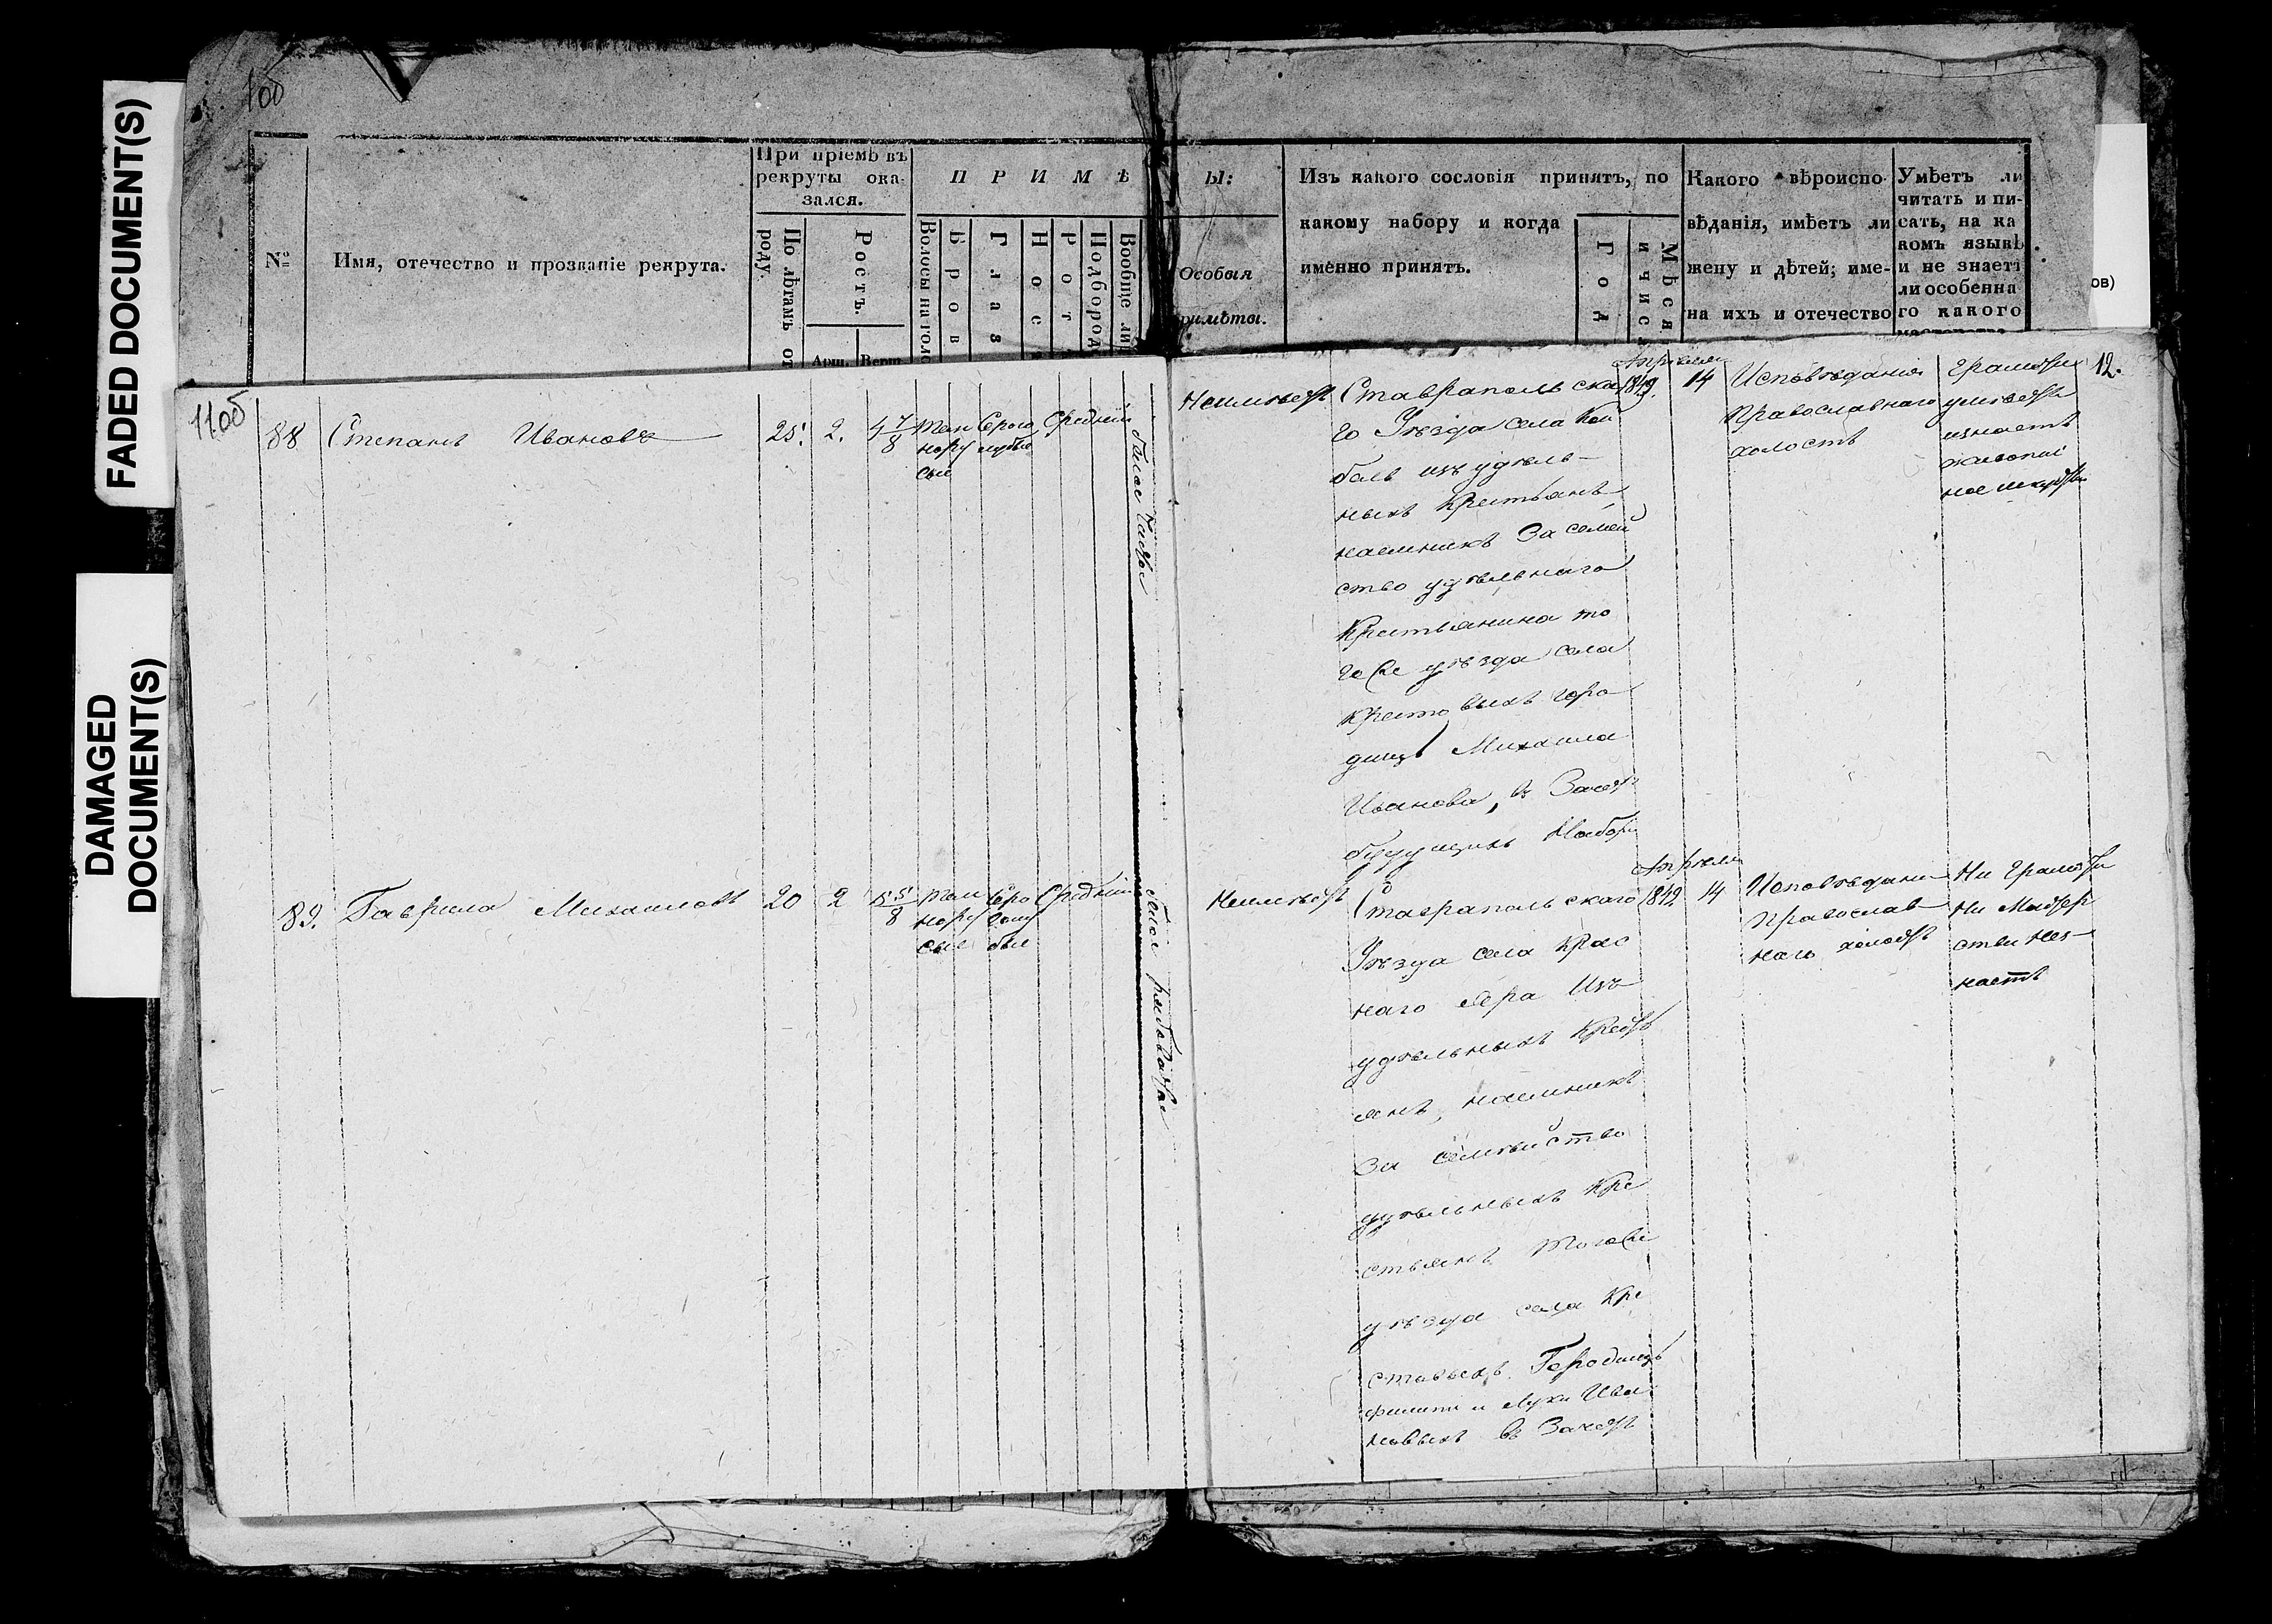 FADED DOCUMENT(S)
DAMAGED
DOCUMENT(S)
10б
№
Имя, отечество и прозваніе рекрута.
При пріемѣ въ
рекруты ока-
зался.
По лѣтамъ от
роду.
Ростъ.
Арш.
Верш.
ПРИМѢ
Волосы на голо
Бров
Глаз
Нос
Рот
Подбород
Вообще ли
Ы:
Особыя
римѣты.
Изъ какого сословія принятъ, по
какому набору и когда
именно принятъ.
Год
Мѣся
и чис
Какого вѣроиспо-
вѣданія, имѣетъ ли
жену и дѣтей; име-
на ихъ и отечество
Умѣетъ ли
читать и пи-
сать, на ка
комъ языкѣ
и не знаетъ
ли особенна
го какого
ов)
11об
88
Степанъ Ивановъ
25.
2.
4 7/8
тем
нору
сые
Серого
лубые
Средній
белое чистое
Неимѣетъ
Ставрапольска
го Уѣзда села
изъ удѣль-
ныхъ Крестьянъ
наемникъ За семей
ство удѣльнаго
Крестьянина то
го же уѣзда села
Кресто выхъ горо
дищъ Михаила
Иванова, въ Зачетъ
будущихъ Набор
Апреля
1849.
14
Исповѣданія
Православнаго
холостъ
грамоте
умѣетъ
изнаетъ
живопи
12.
89.
Гаврила Михаиловъ
20
2
5 5/8
тем
нору
сые
Серо
голу
бые
Средній
белое рябоватое
Неимѣетъ
Ставрапольскаго
Уѣзда села Крас
наго Яра Изъ
удѣльныхъ Крест
янъ, наемникъ
За семѣйство
удѣльныхъ Кре
стьянъ Тогоже
уѣзда села Кре
стовыхъ Городищъ
филипа и Луки Ива
новыхъ въ Зачетъ
Апреля
1849
14
Исповѣдани
Православ
наго холостъ
Ни Грамоте
Ни Мастер
ства Нез-
наетъ